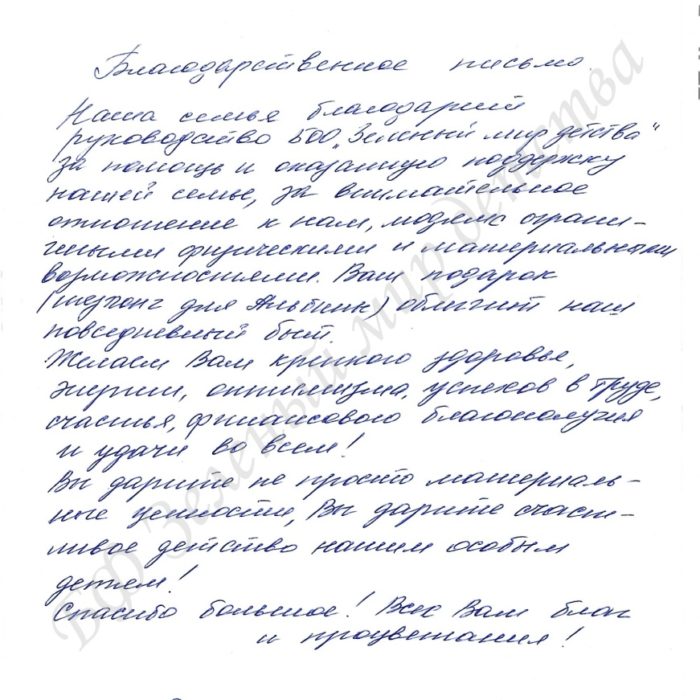 Благодарственное письмо.
Наша семья благодарит
руководство БОО „Зеленый мир детства"
за помощь и оказанную поддержку
нашей семье, за внимательное
отношение к нам, людям с ограни-
чными физическими и материальными
возможностями. Ваш подарок
(шезлонг для Альбины) облегчит наш
повседневный быт.
Желаем Вам крепкого здоровья,
энергии, оптимизма, успехов в труде,
счастья, финансового благополучия
и удачи во всем!
Вы дарите не просто материаль-
ные ценности, Вы дарите счаст-
ливое детство нашим особым
детям!
Спасибо большое! Всех Вам благ
и процветания!
БФ Зеленый мир детства